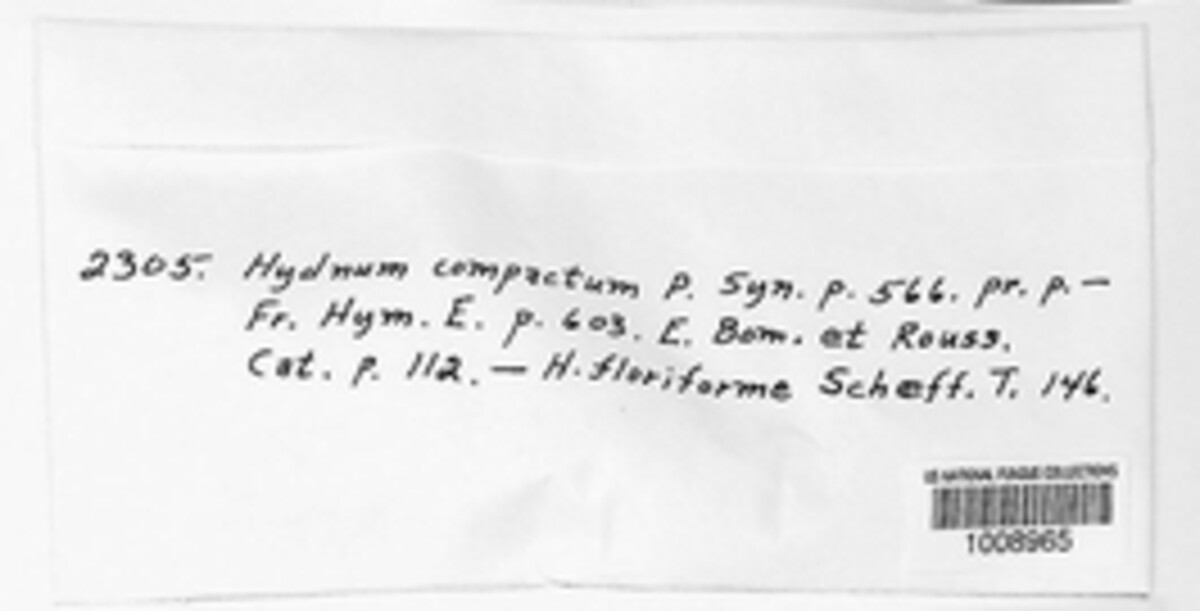 2305. Hydnum compactum P. Syn. p. 566. pr. p. —
Fr. Hym. E. p. 603. E. Bom. et Rouss.
Cat. p. 112. — H. floriforme Scheff. T. 146.
US NATIONAL FUNGUS COLLECTIONS
1008965